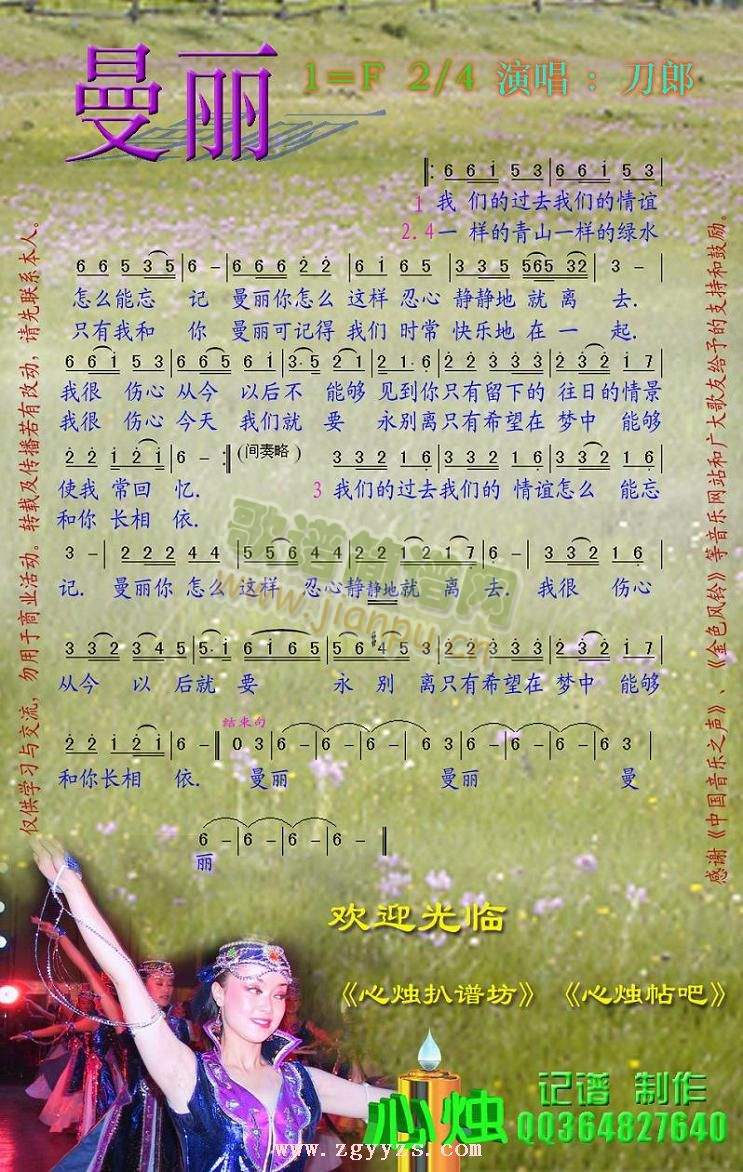 曼丽 1=F 2/4 演唱：刀郎
6 6 i 5 3 | 6 6 i 5 3 |
1 我 们的过去我们的情谊
2.4 一 样的青山一样的绿水
6 6 5 3 5 | 6 - | 6 6 6 2 2 | 6 i 6 5 | 3 3 5 565 32 | 3 - |
怎么能忘 记 曼丽你怎么 这样 忍心 静静地 就 离 去.
只有我和 你 曼丽可记得 我们 时常 快乐地 在 一 起.
我很 伤心 从今 以后不 能够 见到你只有留下的 往日的情景
我很 伤心 今天 我们就 要 永别离只有希望在 梦中 能够
2 2 i 2 i | 6 - :‖ (间奏略)
使我 常回 忆. 3 我们的过去我们的 情谊怎么 能忘
和你 长相 依.
记. 曼丽你 怎么 这样 忍心静静地就 离 去. 我很 伤心
从今 以 后就 要 永 别 离只有希望在 梦中 能够
结束句
2 2 i 2 i | 6 - ‖ 0 3 | 6 - | 6 - | 6 - | 6 3 | 6 - | 6 - | 6 - | 6 3 |
和你长相 依. 曼丽 曼丽 曼
6 - | 6 - | 6 - | 6 - ‖
丽
仅供学习与交流，勿用于商业活动。转载及传播若有改动，请先联系本人。
感谢《中国音乐之声》、《金色风铃》等音乐网站和广大歌友给予的支持和鼓励.
歌谱简谱网
www.jianpu.cn
欢迎光临
《心烛扒谱坊》 《心烛帖吧》
心烛 记谱 制作
QQ364827640
www.zgyyzs.com